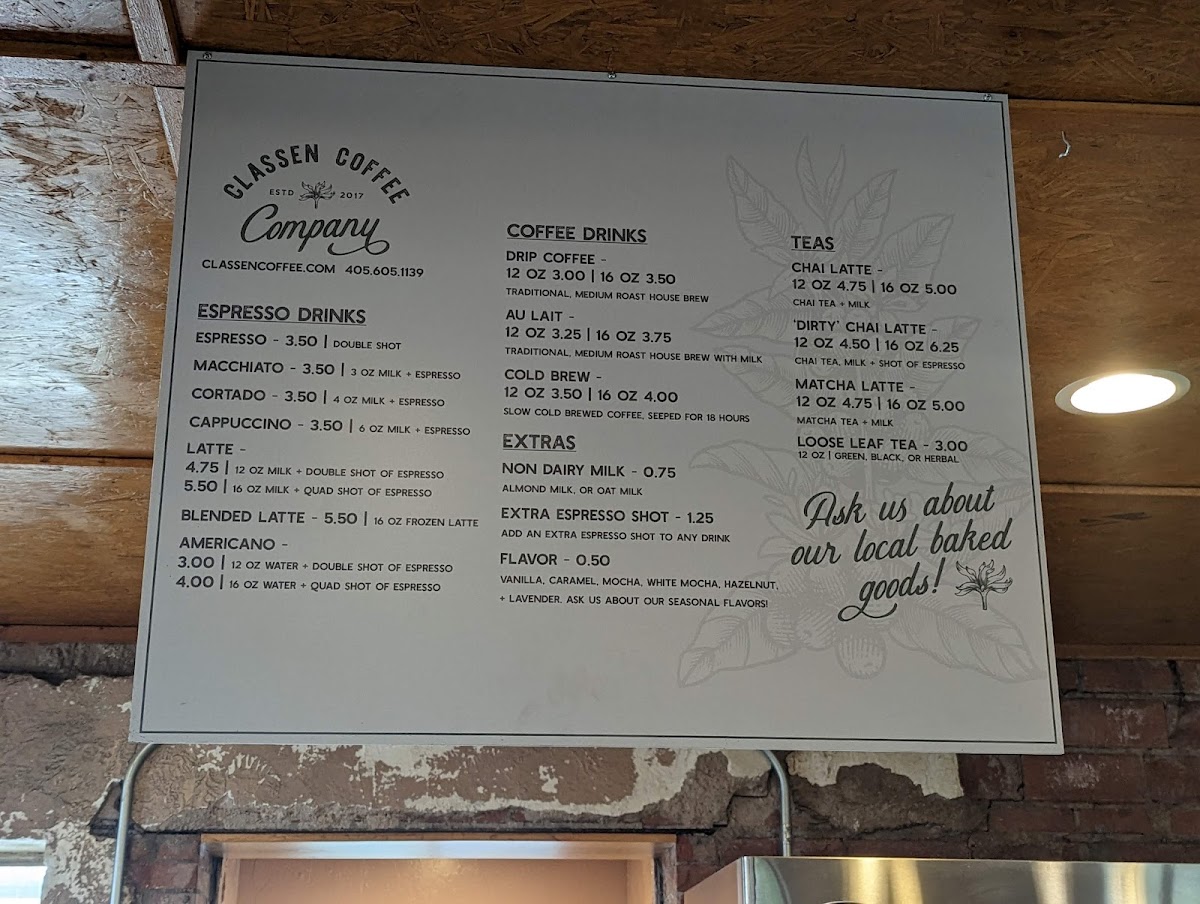 CLASSEN COFFEE
ESTD 2017
Company
CLASSENCOFFEE.COM 405.605.1139
ESPRESSO DRINKS
ESPRESSO - 3.50 | DOUBLE SHOT
MACCHIATO - 3.50 | 3 OZ MILK + ESPRESSO
CORTADO - 3.50 | 4 OZ MILK + ESPRESSO
CAPPUCCINO - 3.50 | 6 OZ MILK + ESPRESSO
LATTE -
4.75 | 12 OZ MILK + DOUBLE SHOT OF ESPRESSO
5.50 | 16 OZ MILK + QUAD SHOT OF ESPRESSO
BLENDED LATTE - 5.50 | 16 OZ FROZEN LATTE
AMERICANO -
3.00 | 12 OZ WATER + DOUBLE SHOT OF ESPRESSO
4.00 | 16 OZ WATER + QUAD SHOT OF ESPRESSO
COFFEE DRINKS
DRIP COFFEE -
12 OZ 3.00 | 16 OZ 3.50
TRADITIONAL, MEDIUM ROAST HOUSE BREW
AU LAIT -
12 OZ 3.25 | 16 OZ 3.75
TRADITIONAL, MEDIUM ROAST HOUSE BREW WITH MILK
COLD BREW -
12 OZ 3.50 | 16 OZ 4.00
SLOW COLD BREWED COFFEE, SEEPED FOR 18 HOURS
EXTRAS
NON DAIRY MILK - 0.75
ALMOND MILK, OR OAT MILK
EXTRA ESPRESSO SHOT - 1.25
ADD AN EXTRA ESPRESSO SHOT TO ANY DRINK
FLAVOR - 0.50
VANILLA, CARAMEL, MOCHA, WHITE MOCHA, HAZELNUT,
+ LAVENDER. ASK US ABOUT OUR SEASONAL FLAVORS!
TEAS
CHAI LATTE -
12 OZ 4.75 | 16 OZ 5.00
CHAI TEA + MILK
'DIRTY' CHAI LATTE -
12 OZ 4.50 | 16 OZ 6.25
CHAI TEA, MILK + SHOT OF ESPRESSO
MATCHA LATTE -
12 OZ 4.75 | 16 OZ 5.00
MATCHA TEA + MILK
LOOSE LEAF TEA - 3.00
12 OZ | GREEN, BLACK, OR HERBAL
Ask us about
our local baked
goods!